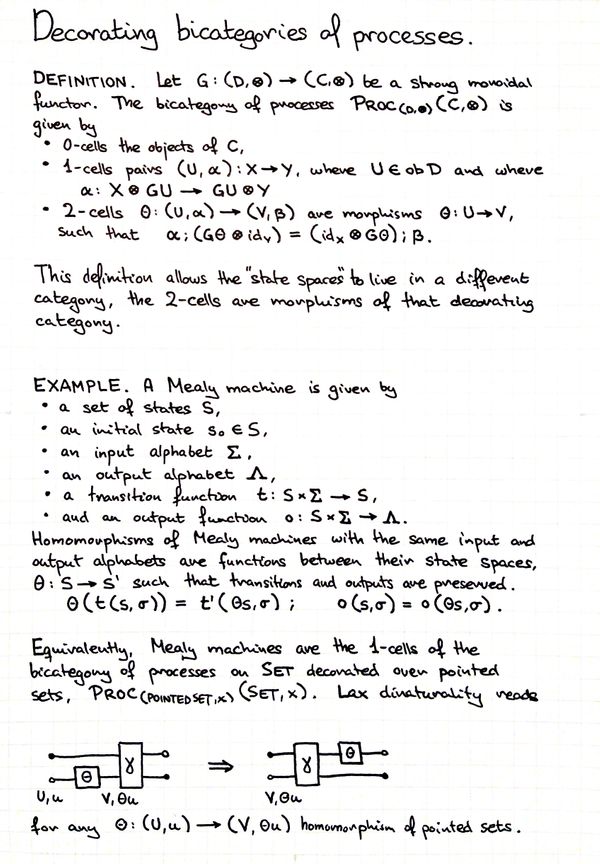 Decorating bicategories of processes.
DEFINITION. Let G: (D,⊗) → (C,⊗) be a strong monoidal
functor. The bicategory of processes PROC(D,⊗) (C,⊗) is
given by
• 0-cells the objects of C,
• 1-cells pairs (U,α): X→Y, where U∈obD and where
α: X⊗GU → GU⊗Y
• 2-cells θ: (U,α) → (V,β) are morphisms θ: U→V,
such that α;(Gθ⊗idY) = (idX⊗Gθ);β.
This definition allows the "state spaces" to live in a different
category, the 2-cells are morphisms of that decorating
category.
EXAMPLE. A Mealy machine is given by
• a set of states S,
• an initial state s₀∈S,
• an input alphabet Σ,
• an output alphabet Λ,
• a transition function t: S×Σ → S,
• and an output function o: S×Σ → Λ.
Homomorphisms of Mealy machines with the same input and
output alphabets are functions between their state spaces,
θ: S→S' such that transitions and outputs are preserved.
θ(t(s,σ)) = t'(θs,σ); o(s,σ) = o(θs,σ).
Equivalently, Mealy machines are the 1-cells of the
bicategory of processes on SET decorated over pointed
sets, PROC(POINTEDSET,×) (SET,×). Lax dinaturality reads
θ γ ⇒ γ θ
U,u V,θu V,θu
for any θ: (U,u) → (V,θu) homomorphism of pointed sets.